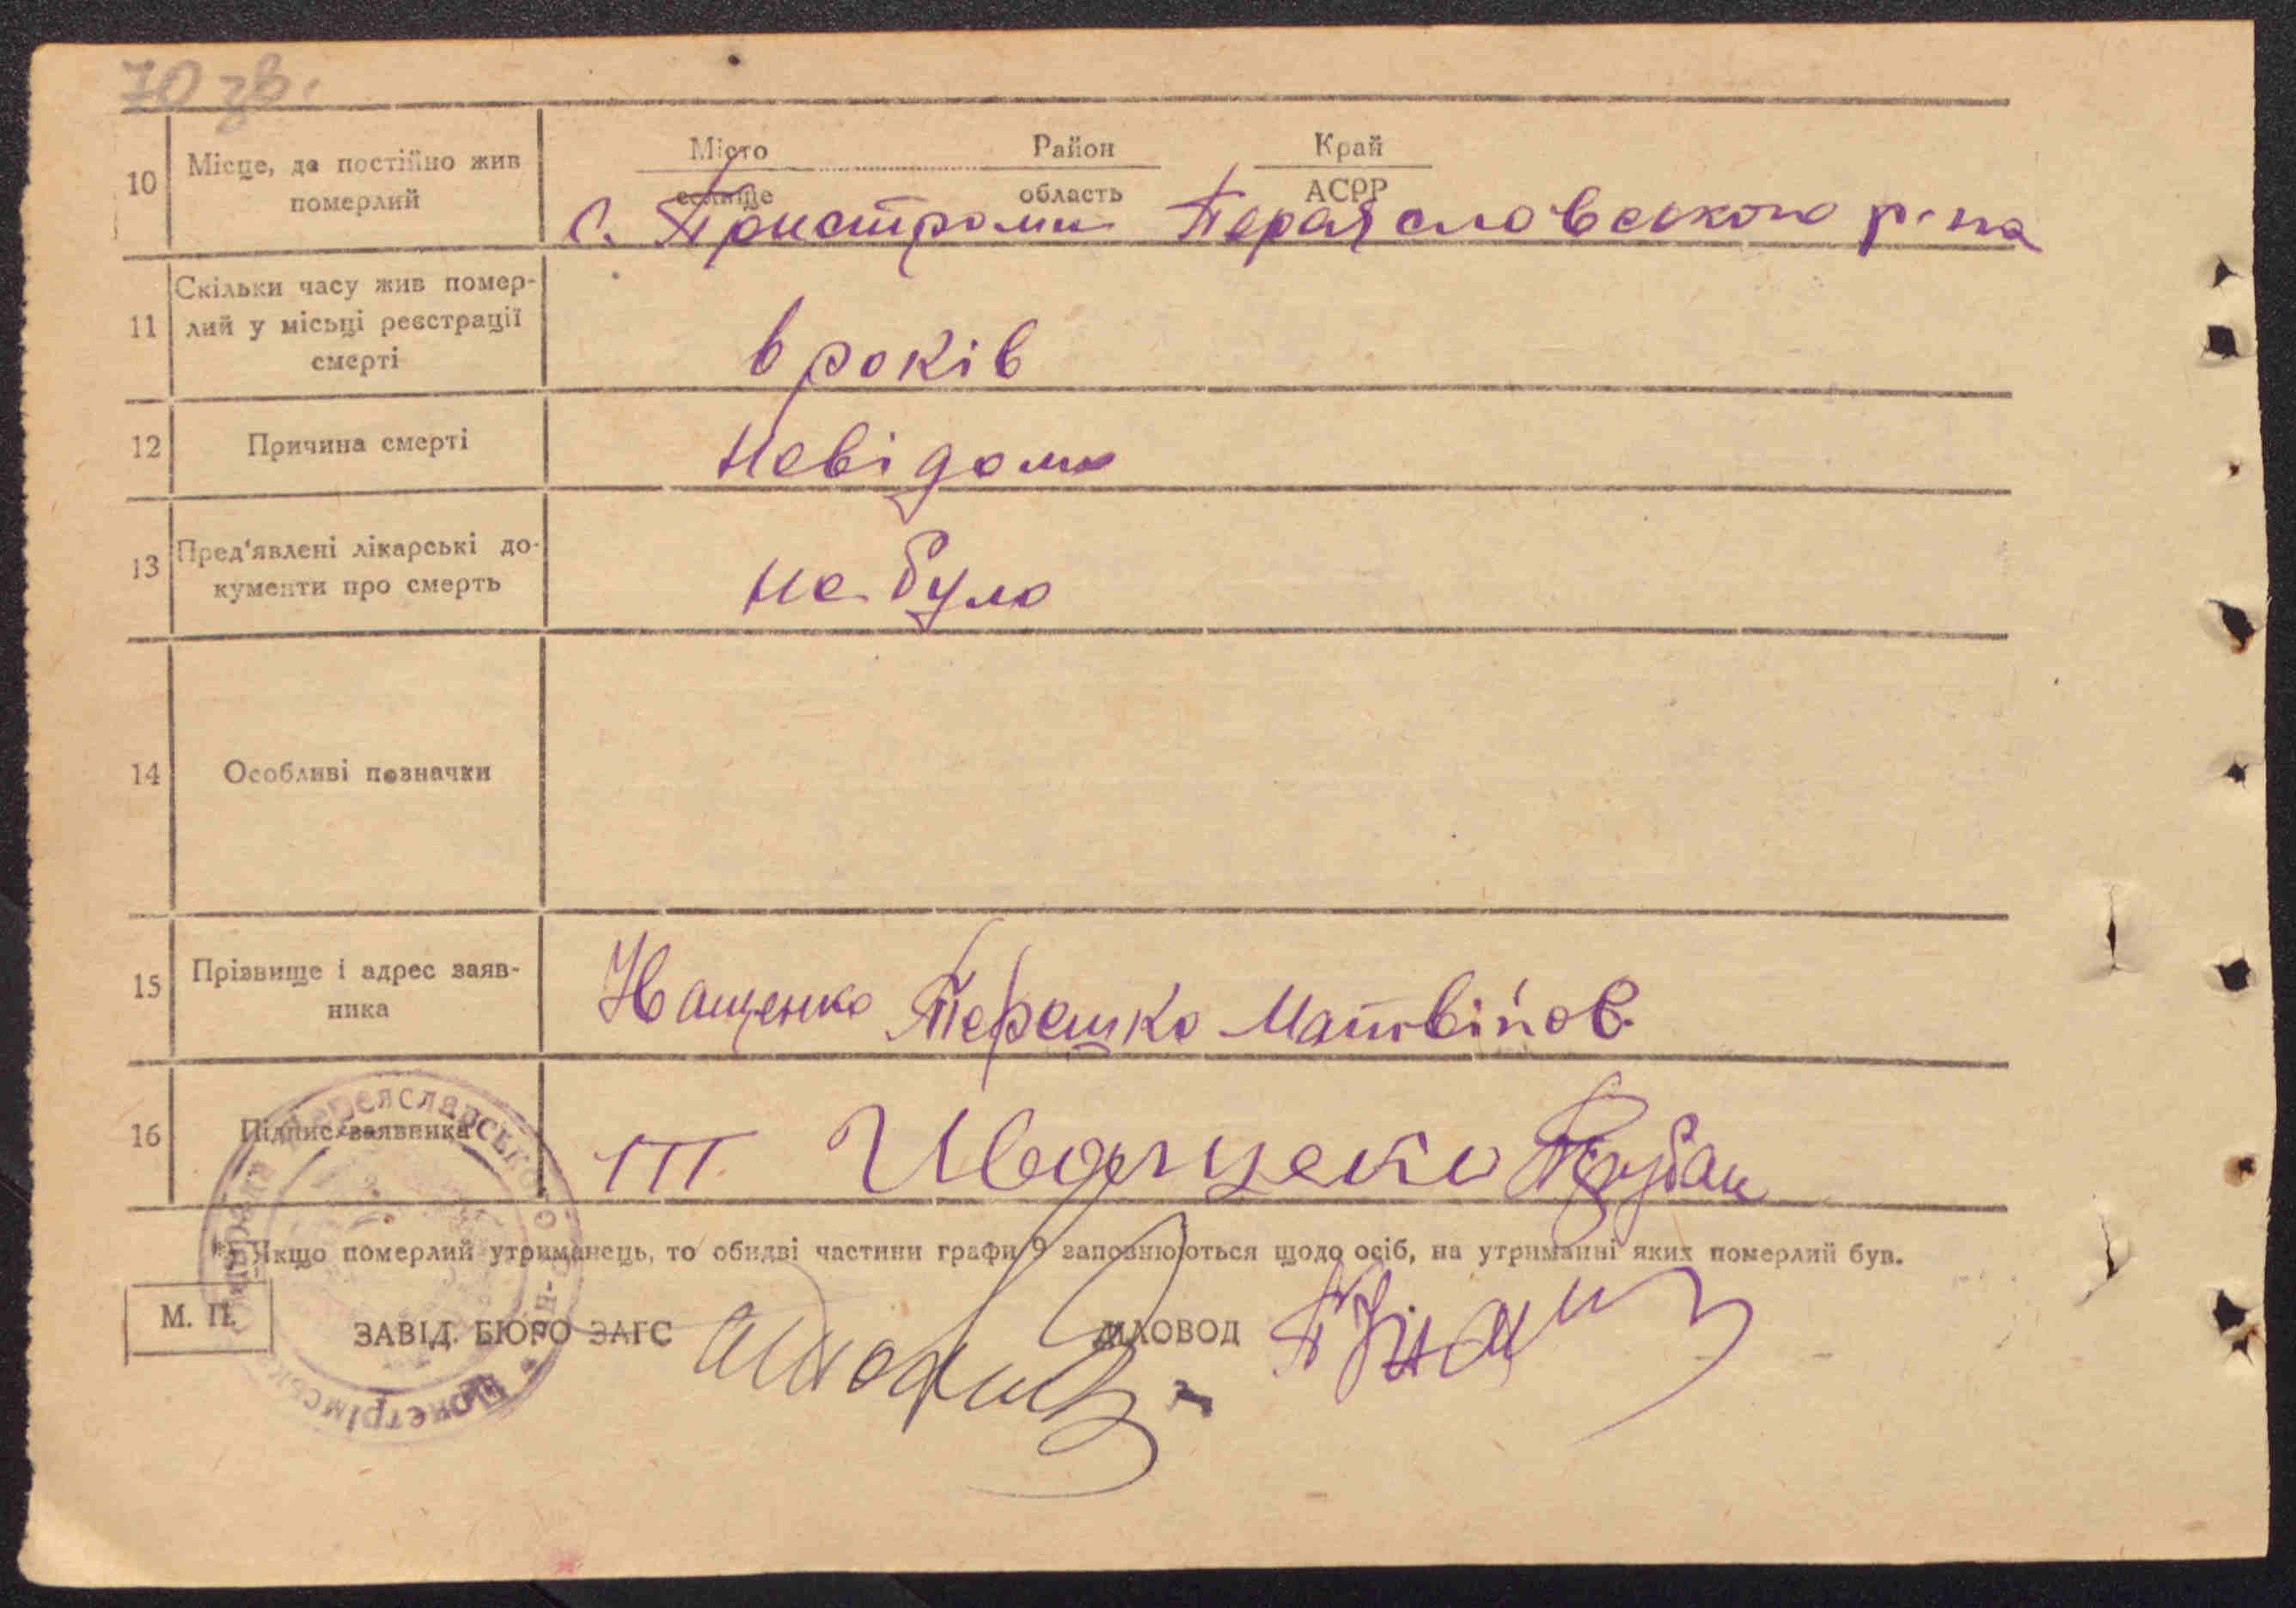 70 зв.
Місто Район Край
10 Місце, де постійно жив селище область АСРР
померлий с. Пристроми Переясловського р-на
Скільки часу жив помер-
11 лий у місьці реєстрації
смерті 6 років
12 Причина смерті невідома
13 Пред'явлені лікарські до-
кументи про смерть не було
14 Особливі позначки
15 Прізвище і адрес заяв-
ника Іващенко Терешко Матвійов.
16 Підпис заявника
*) Якщо померлий утриманець, то обидві частини графи 9 заповнюються щодо осіб, на утриманні яких померлий був.
М. П.
ЗАВІД. БЮРО ЗАГС ДІЛОВОД